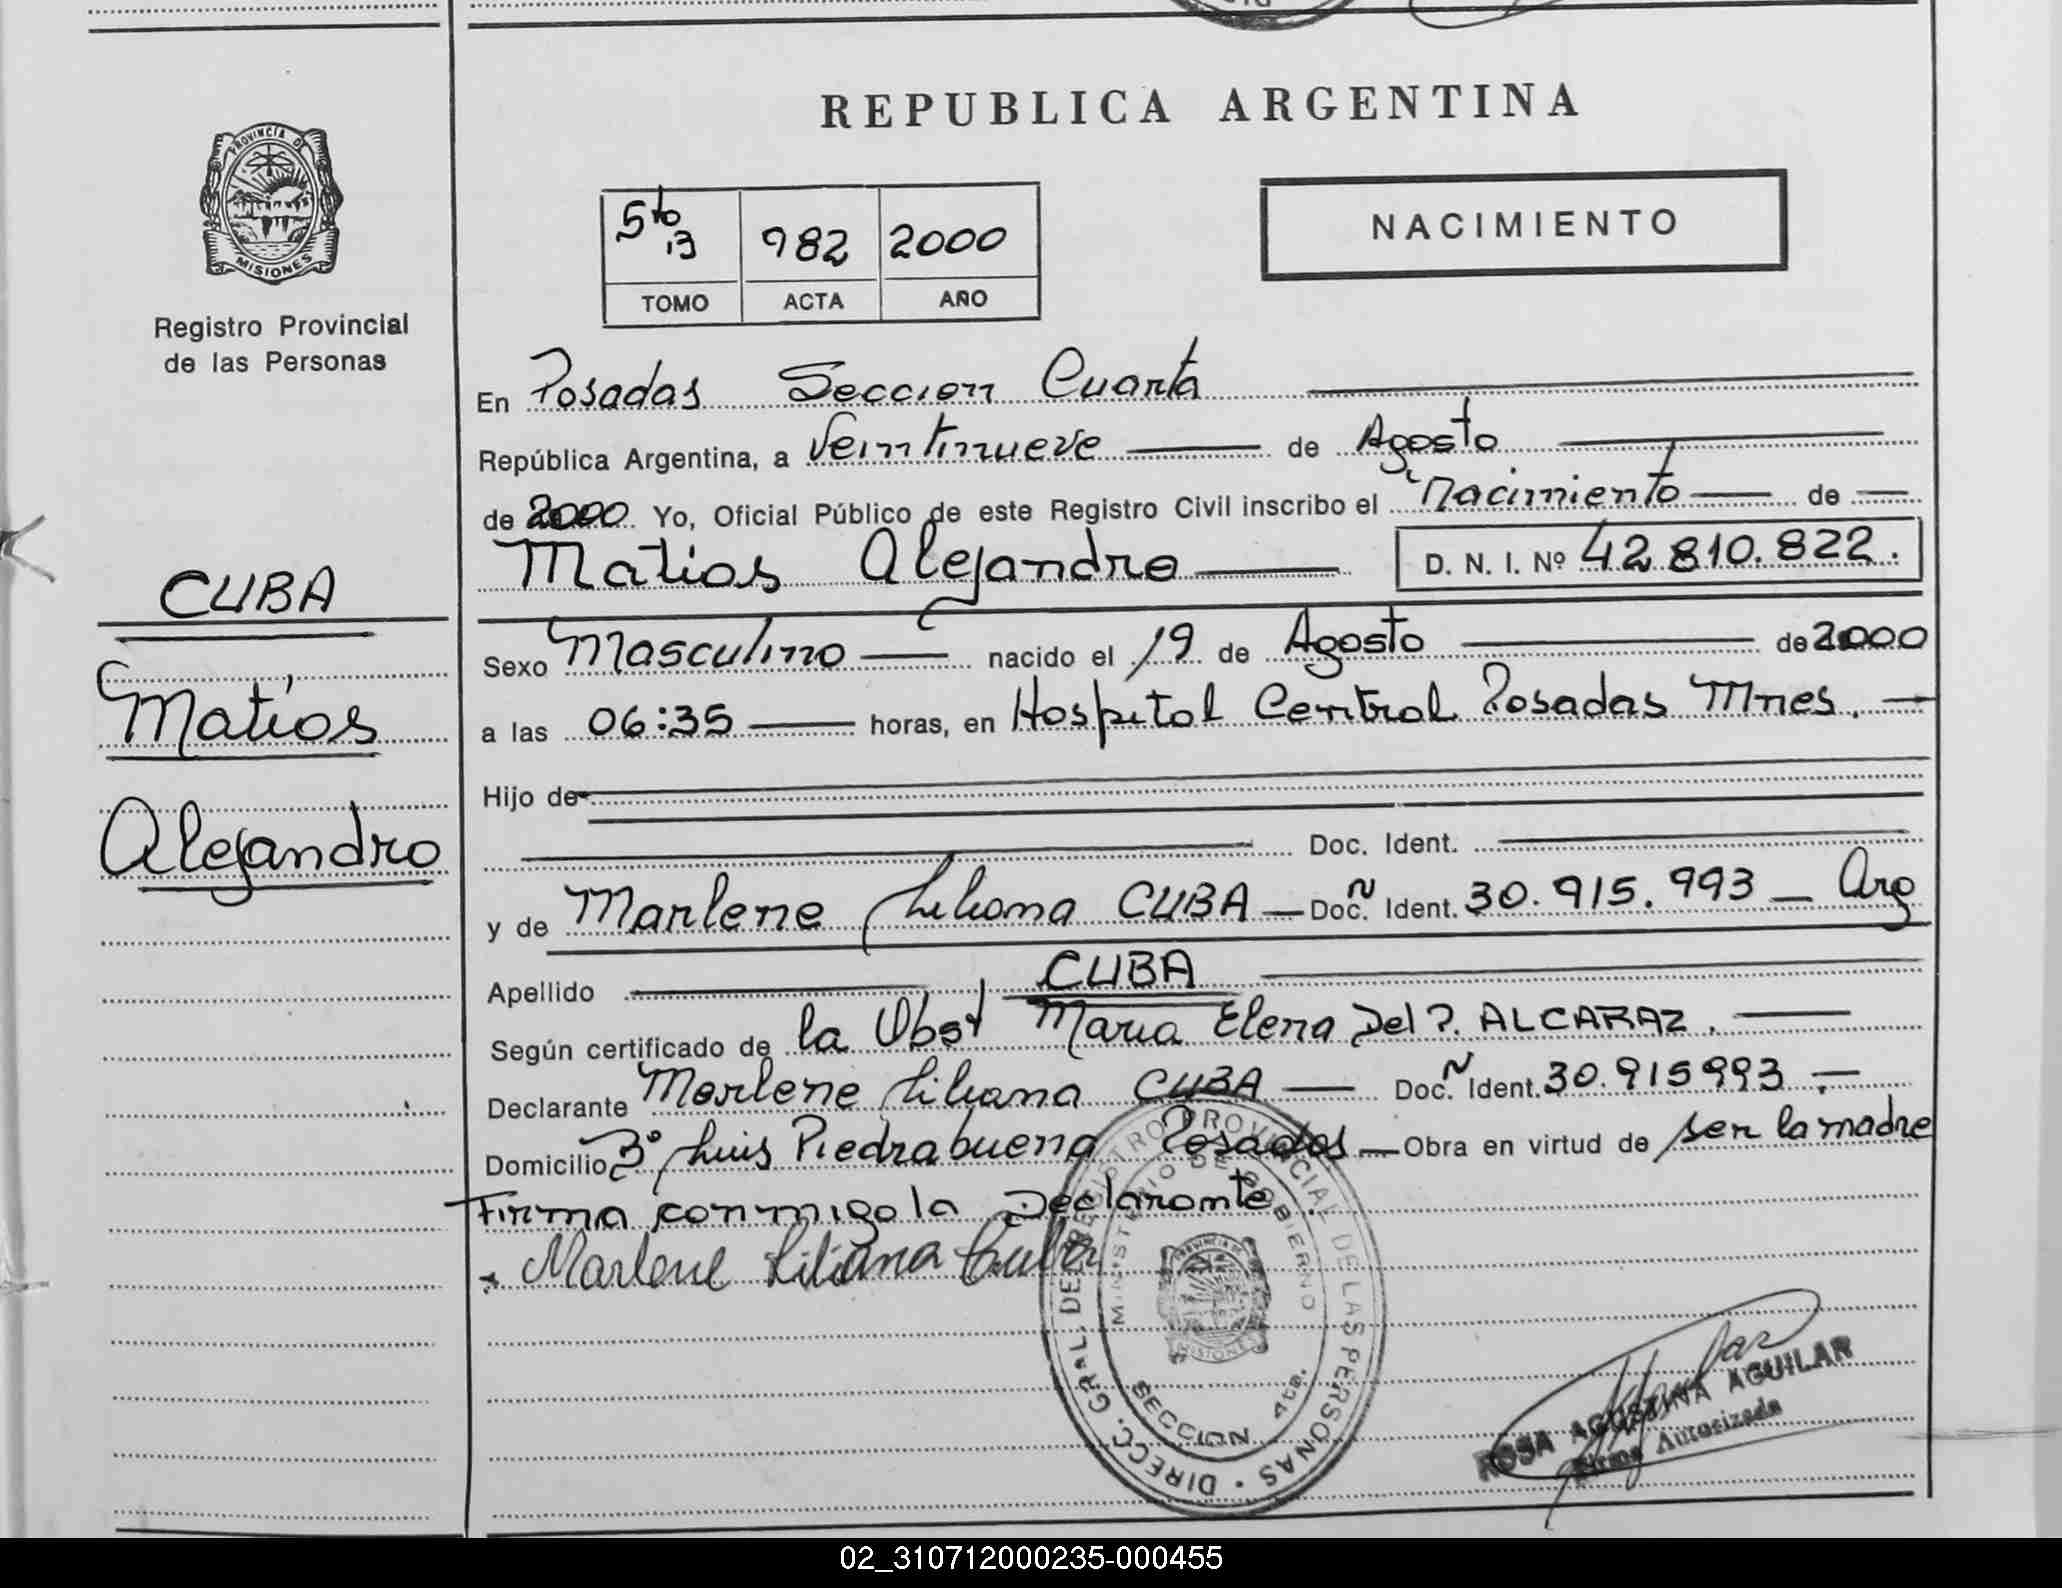 REPUBLICA ARGENTINA
PROVINCIA DE
MISIONES
Registro Provincial
de las Personas
5to 13 982 2000
TOMO ACTA AÑO
NACIMIENTO
En Posadas Seccion Cuarta
República Argentina, a Veintinueve de Agosto
de 2000 Yo, Oficial Público de este Registro Civil inscribo el Nacimiento de
Matias Alejandro D. N. I. Nº 42.810.822.
CUBA
Matías
Alejandro
Sexo Masculino nacido el 19 de Agosto de 2000
a las 06:35 horas, en Hospital Central Posadas Mnes.
Hijo de
Doc. Ident.
y de Marlene Liliana CUBA Doc. Ñ Ident. 30.915.993 Arg
Apellido CUBA
Según certificado de la Obst Maria Elena Del P. ALCARAZ.
Declarante Marlene Liliana CUBA Doc. Ñ Ident. 30.915993.
Domicilio Bº Luis Piedrabuena Posadas Obra en virtud de ser la madre
Firma conmigo la Declarante.
Marlene Liliana Cuba
DIRECC. GRAL. DEL REGISTRO PROVINCIAL DE LAS PERSONAS
MINISTERIO DE GOBIERNO
PROVINCIA DE
MISIONES
SECCION 4ta.
ROSA AGUSTINA AGUILAR
Firma Autorizada
02_310712000235-000455